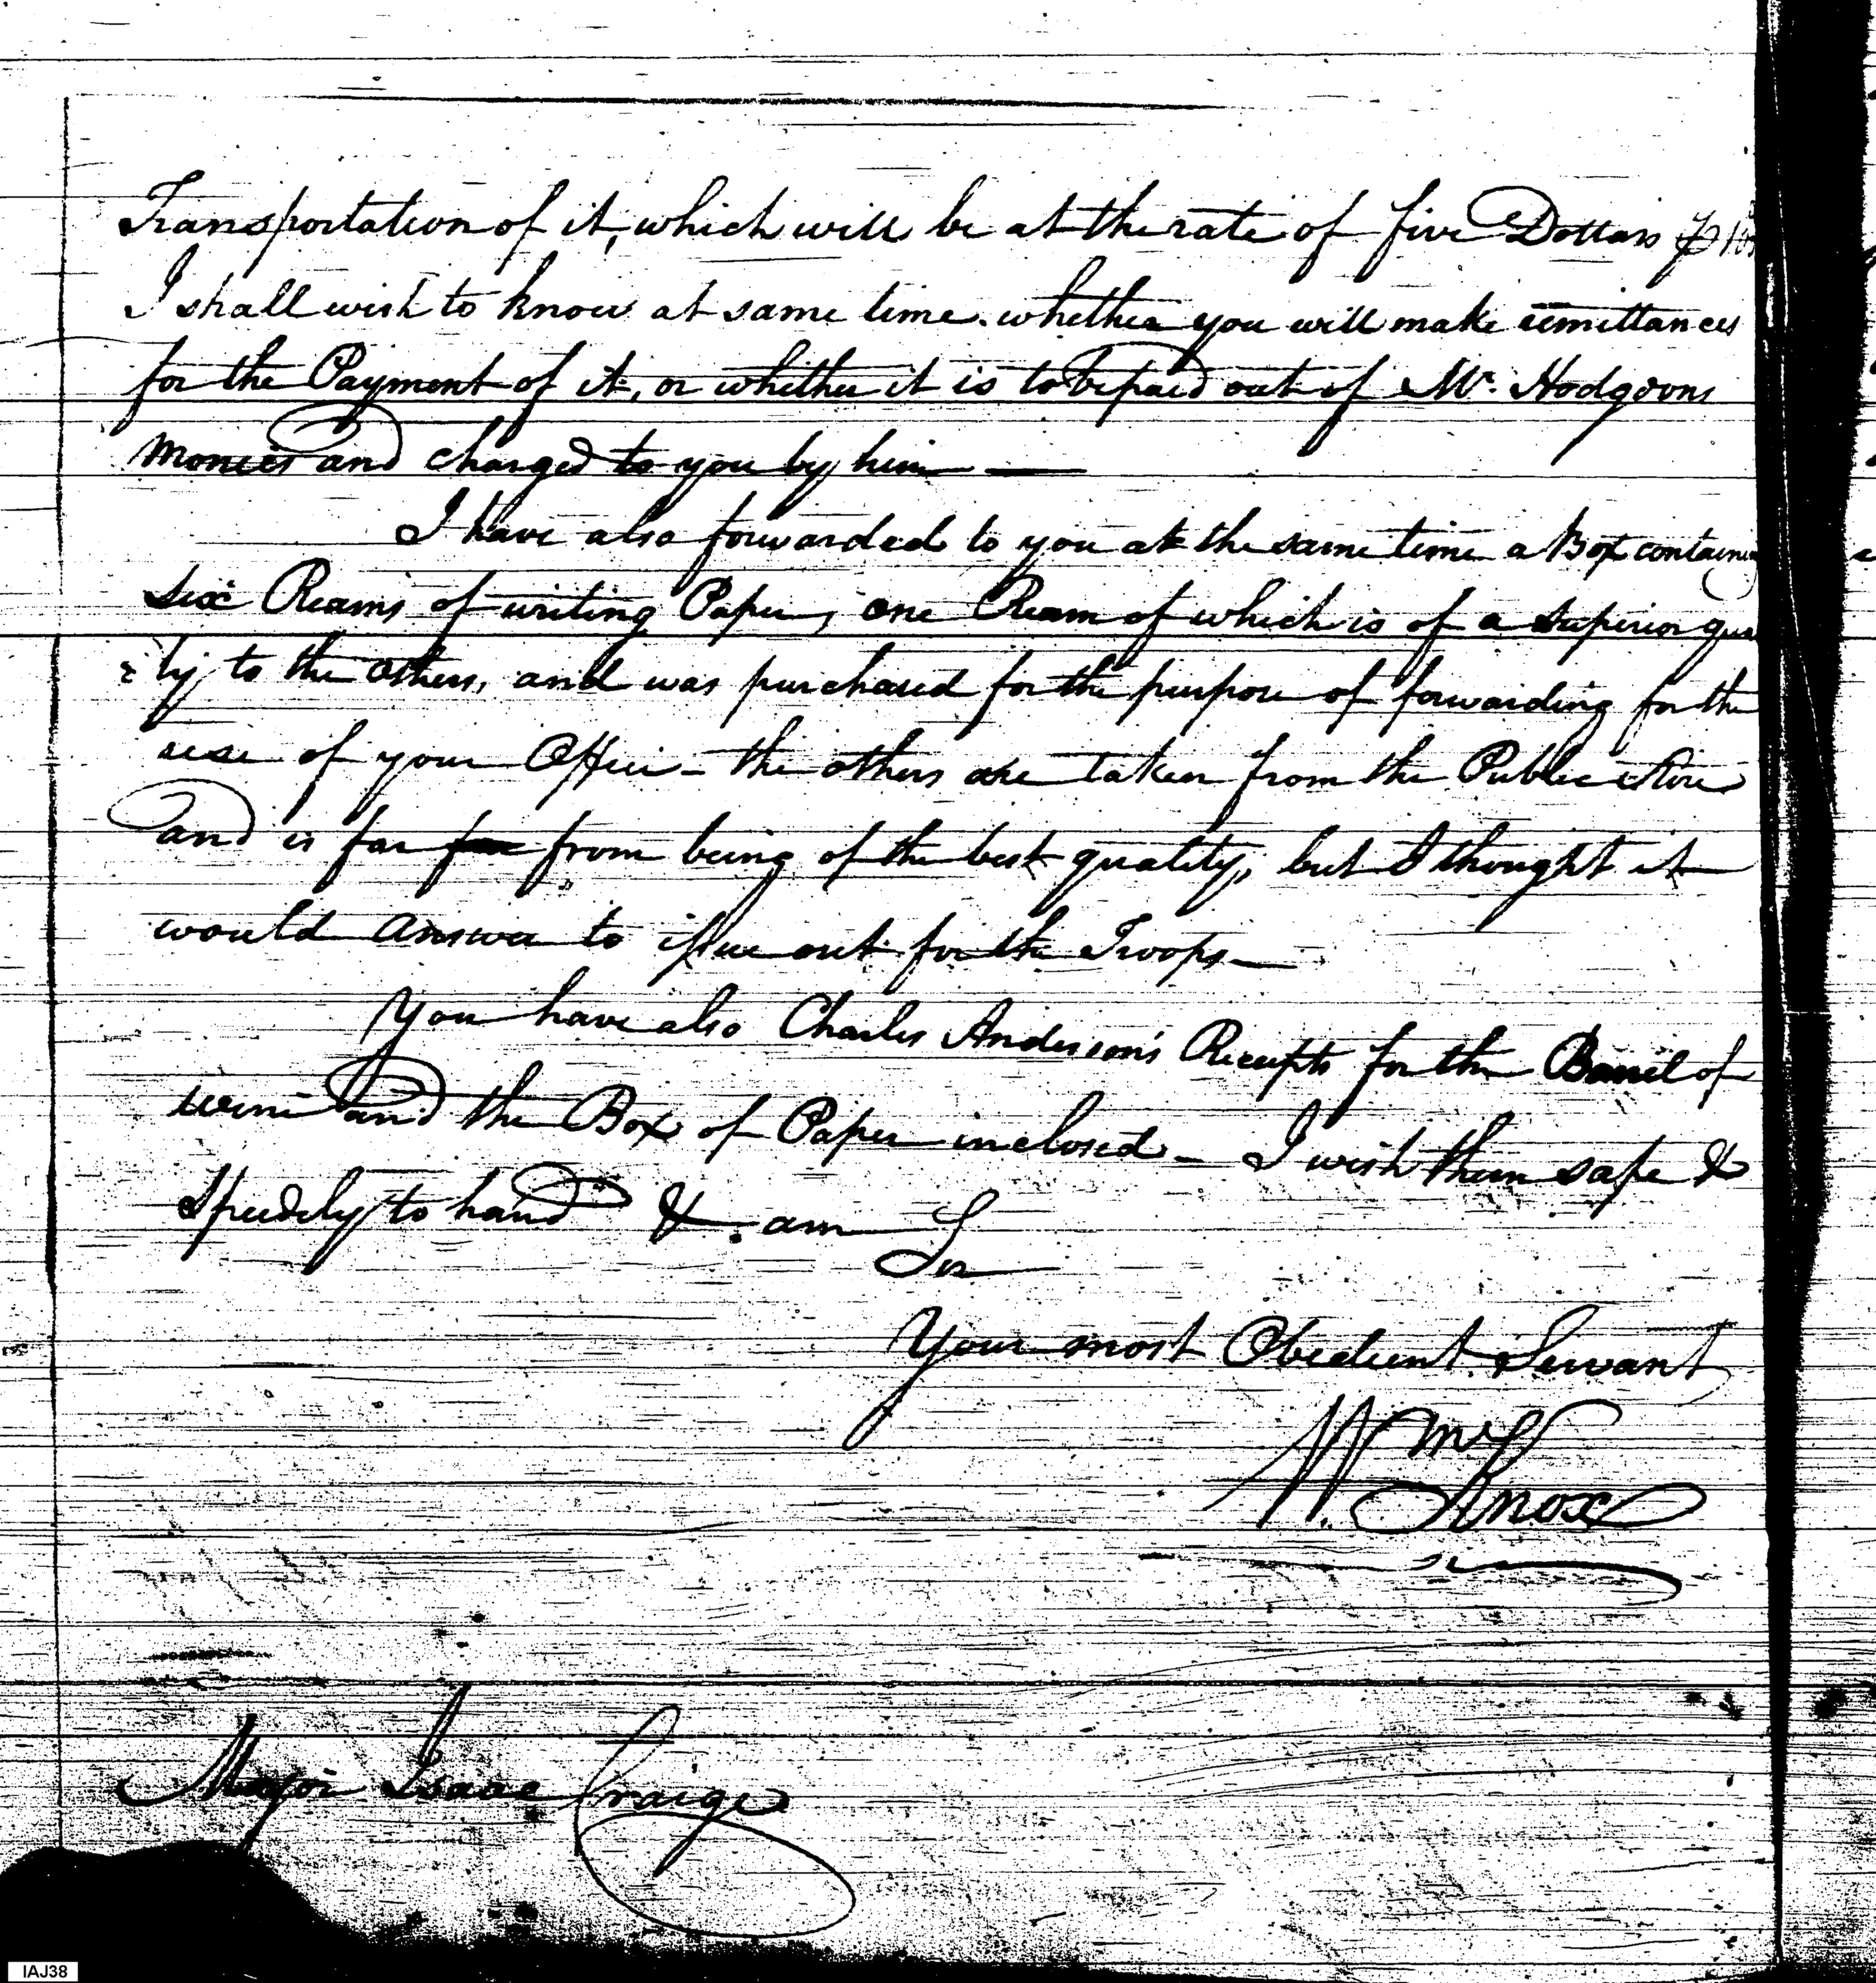 Transportation of it, which will be at the rate of five Dollars ⅌
I shall wish to know at same time whether you will make remittances
for the Payment of it, or whether it is to be paid out of Mr. Hodgdons
monies and charged to you by him —
I have also forwarded to you at the same time a Box containing
six Reams of writing Paper, one Ream of which is of a superior qua
ty to the others, and was purchased for the purpose of forwarding for the
use of your Office - the others are taken from the Public Store
and is far far from being of the best quality, but I thought it
would answer to issue out for the Troops —
You have also Charles Anderson's Receipts for the Barrel of
wine and the Box of Paper inclosed - I wish them safe &
speedily to hand & am
Sir
Your most Obedient Servant
Wm
Knox
Major Isaac Craige
IAJ38